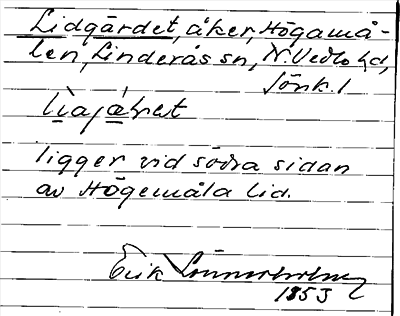 Lidgärdet, åker, Högamå-
len, Linderås sn, N. Vedbo hd,
Jönk. l
ligger vid södra sidan
av Högemåla lid.
Erik
1953